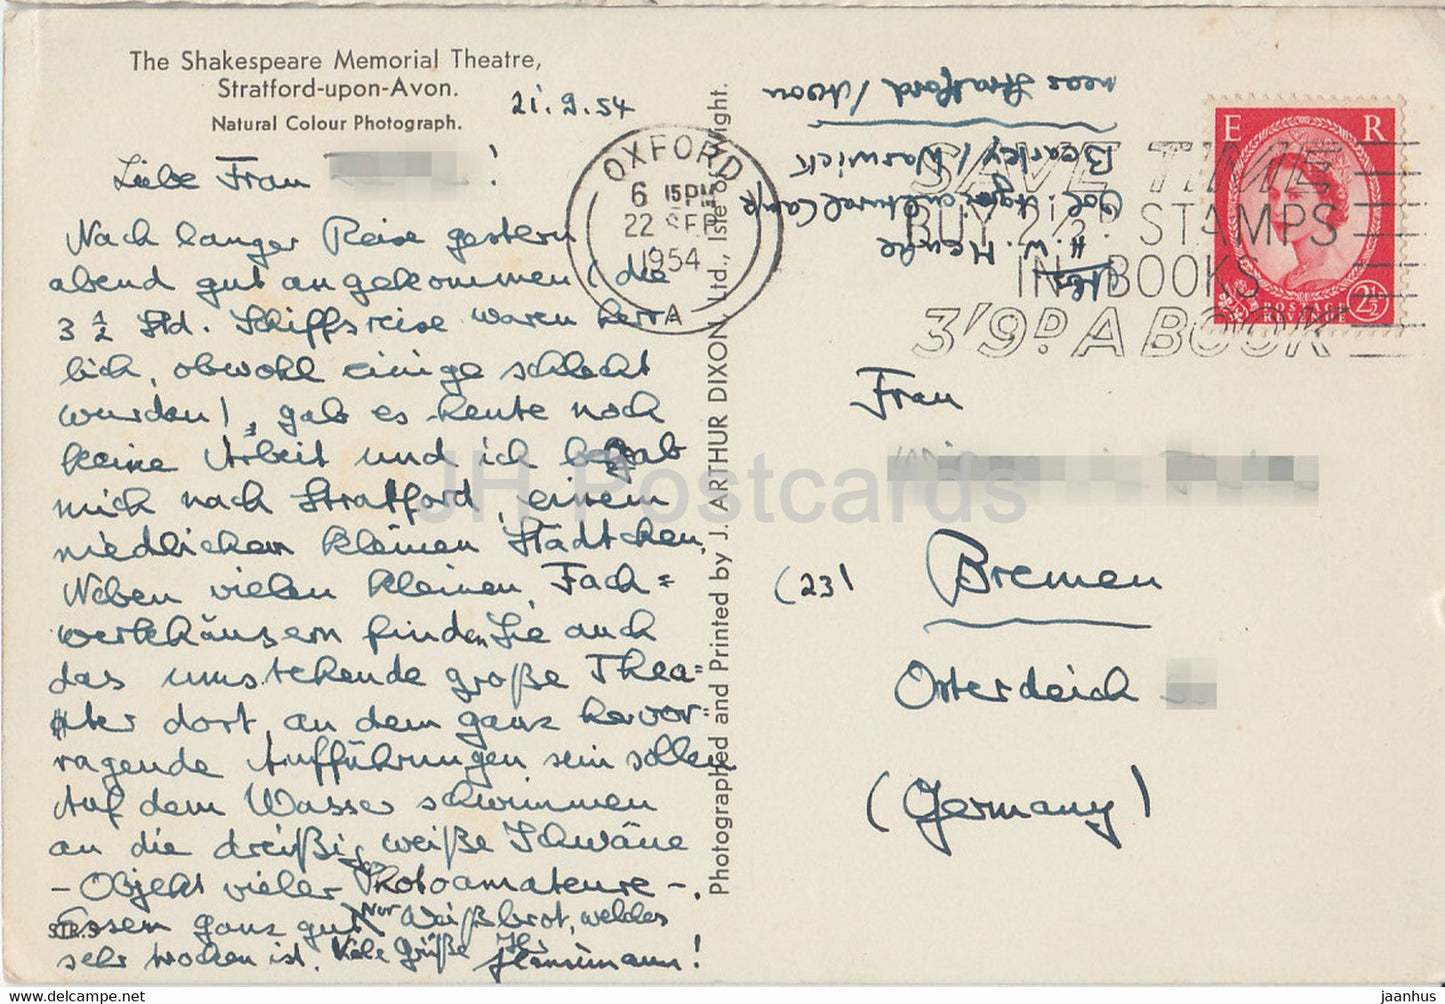 The Shakespeare Memorial Theatre,
Stratford-upon-Avon.
Natural Colour Photograph.
21.9.54
Liebe Frau !
Nach langer Reise gestern
abend gut angekommen (die
3 1/2 Std. Schiffsreise waren herr
lich, obwohl einige schlecht
wurden), gab es heute noch
keine Arbeit und ich begab
mich nach Stratford, einem
niedlichen kleinen Städtchen.
Neben vielen kleinen Fach=
werkhäusern finden Sie auch
das umstehende große Thea=
ter dort, an dem ganz hervor=
ragende Aufführungen sein sollen
Auf dem Wasser schwimmen
an die dreißig weiße Schwäne
- Objekt vieler Photoamateure -.
Essen ganz gut, Nur Weißbrot, welches
sehr trocken ist. Viele Grüße Ihr
!
Photographed and Printed by J. ARTHUR DIXON, Ltd., Isle of Wight.
OXFORD
6 15 PM
22 SEP
1954
A
H. W.
Agricultural Camp
Bearley / Warwick
near Stratford / Avon
SAVE TIME
BUY 2½D. STAMPS
IN BOOKS
3'9D. A BOOK
E R
POSTAGE
REVENUE
2½
Frau
(23) Bremen
Osterdeich
(Germany)
JH Postcards
jaanhus
HipPostcard.com